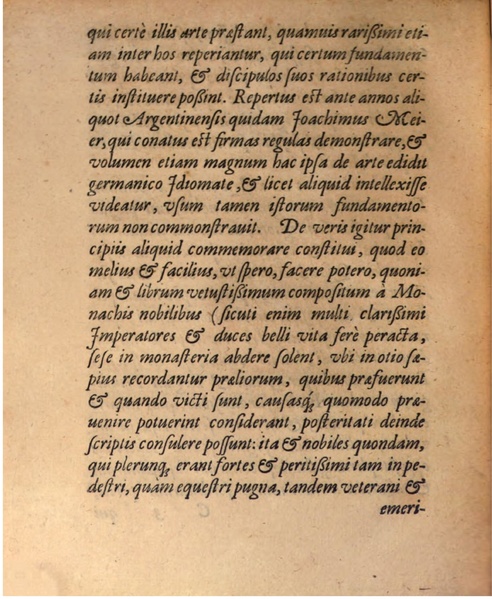 qui certè illis arte præstant, quamuis rarißimi eti-
am inter hos reperiantur, qui certum fundamen-
tum habeant, & discipulos suos rationibus cer-
tis instituere poßint. Repertus est ante annos ali-
quot Argentinensis quidam Joachimus Mei-
er, qui conatus est firmas regulas demonstrare, &
volumen etiam magnum hac ipsa de arte edidit
germanico Idiomate, & licet aliquid intellexisse
videatur, vsum tamen istorum fundamento-
rum non commonstrauit. De veris igitur prin-
cipiis aliquid commemorare constitui, quod eo
melius & facilius, vt spero, facere potero, quoni-
am & librum vetustißimum compositum à Mo-
nachis nobilibus (sicuti enim multi clarißimi
Imperatores & duces belli vita ferè peracta,
sese in monasteria abdere solent, vbi in otio sæ-
pius recordantur præliorum, quibus præfuerunt
& quando victi sunt, causasq́; quomodo præ-
uenire potuerint considerant, posteritati deinde
scriptis consulere possunt: ita & nobiles quondam,
qui plerunq; erant fortes & peritißimi tam in pe-
destri, quàm equestri pugna, tandem veterani &
emeri-